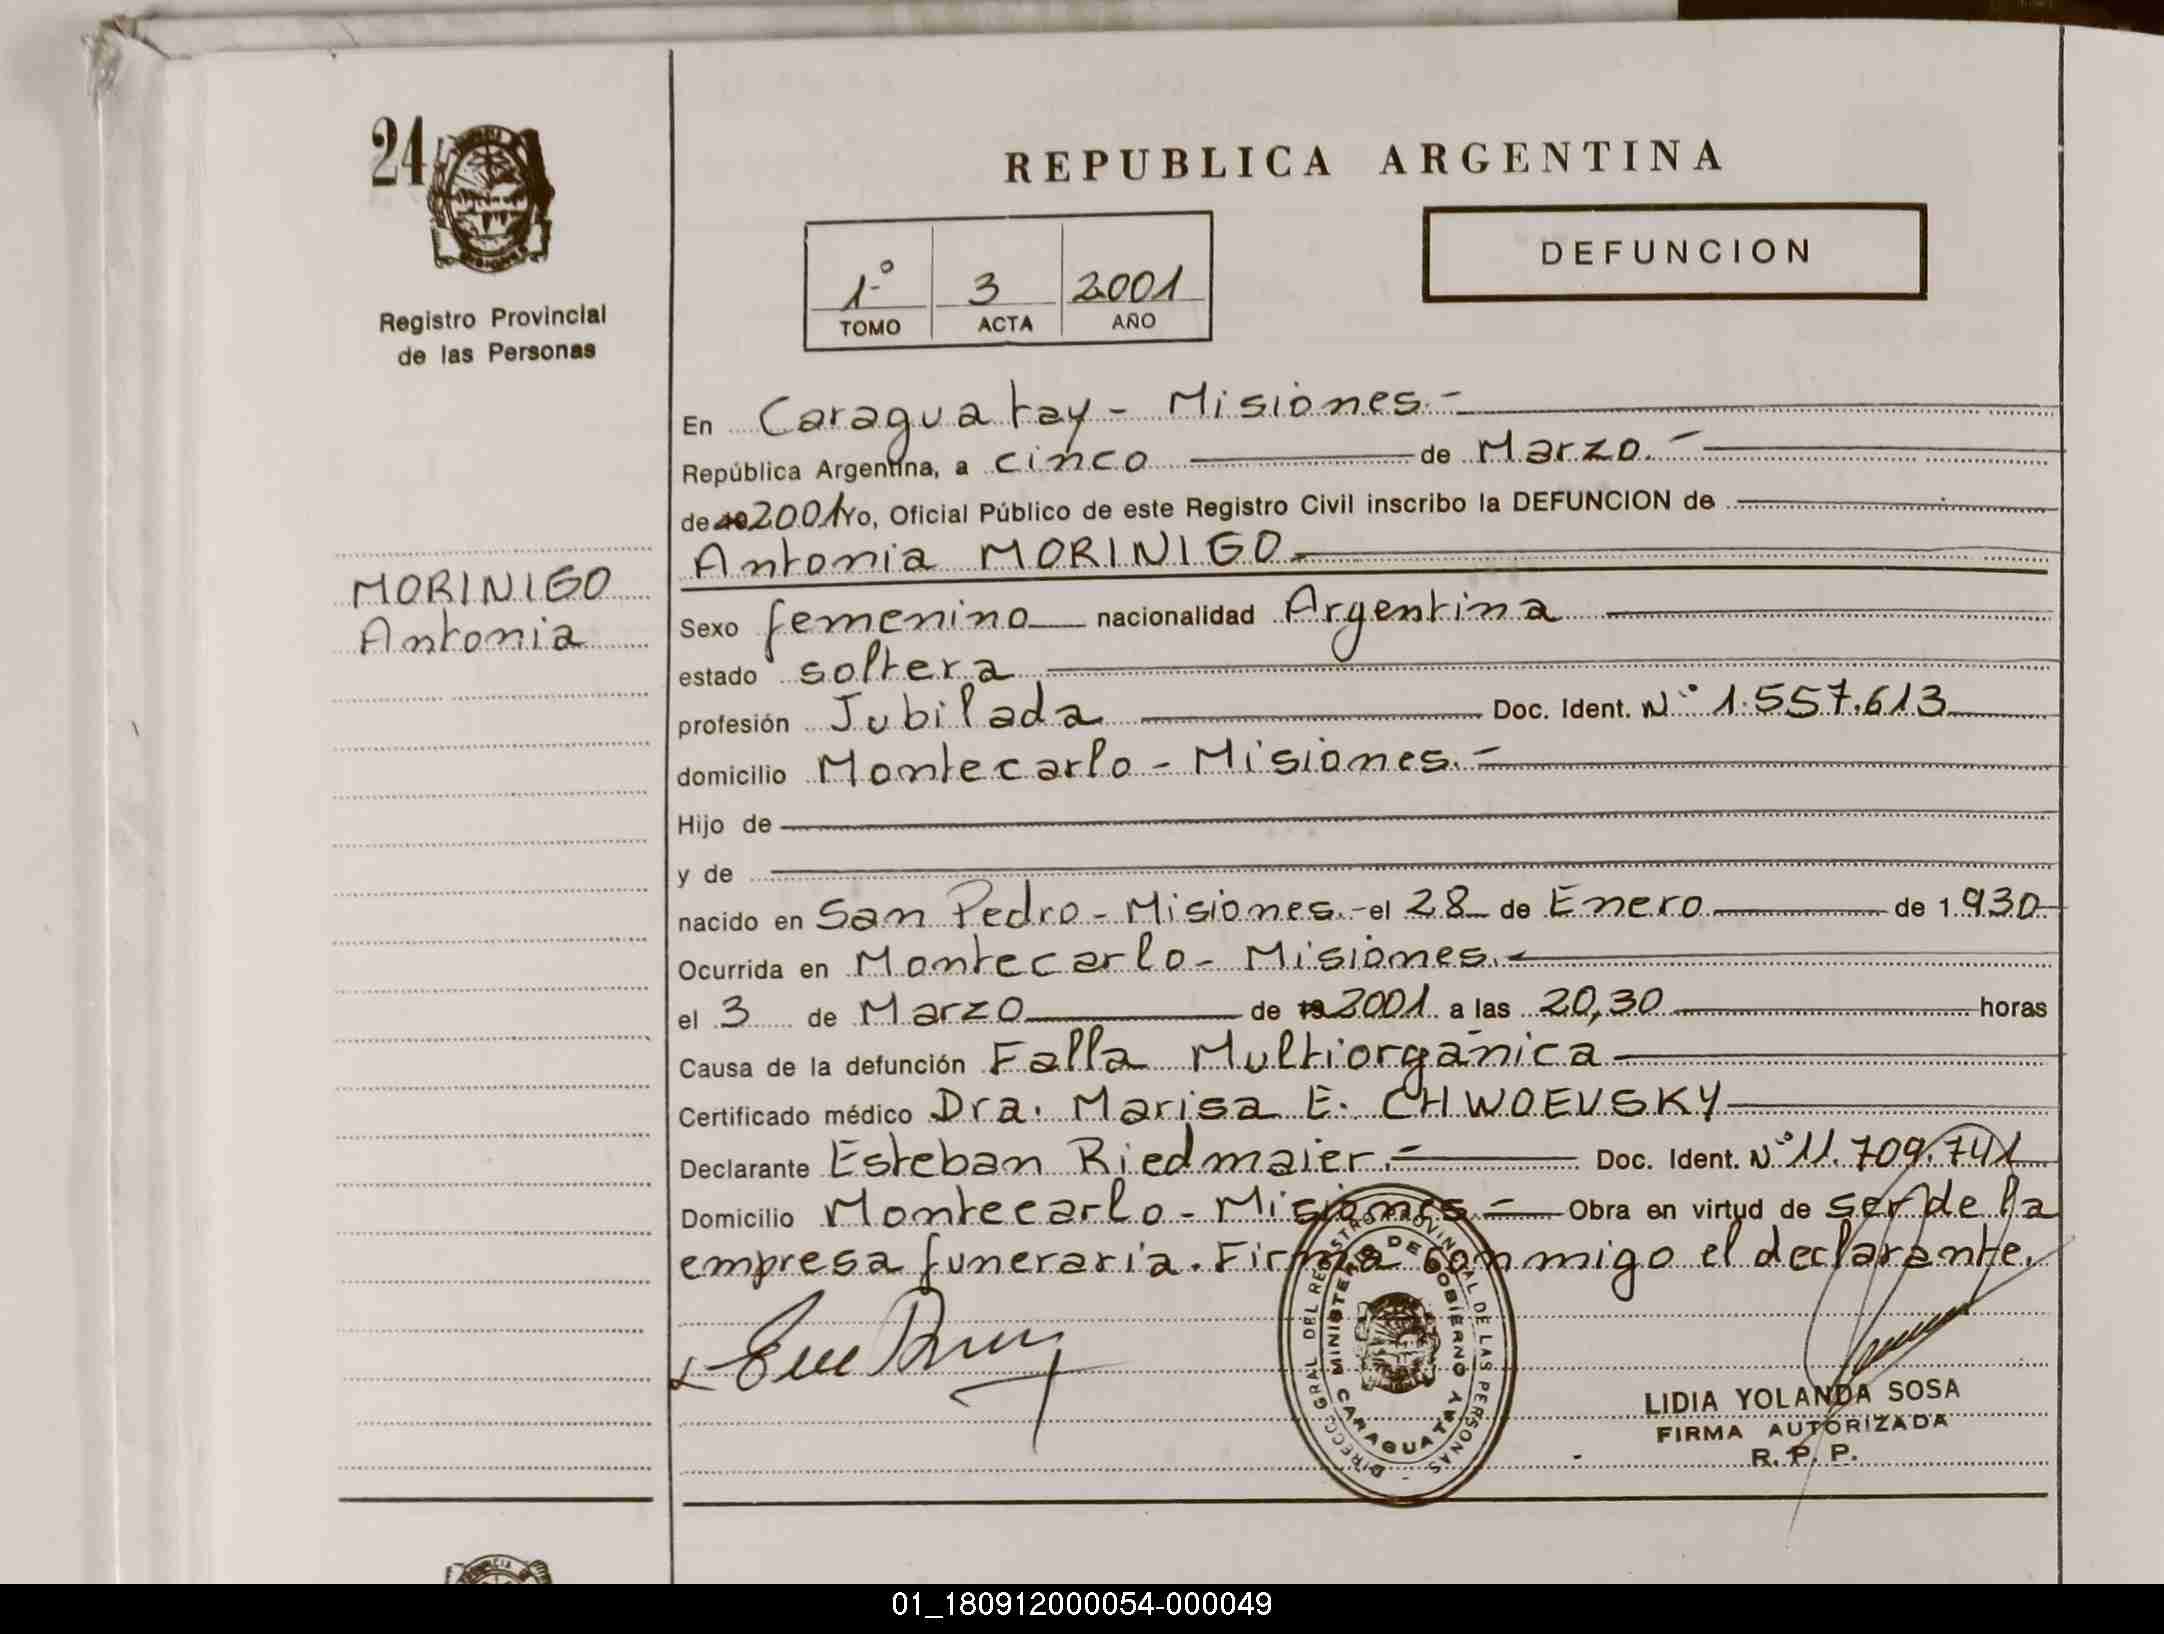 24
Registro Provincial
de las Personas
MORINIGO
Antonia
REPUBLICA ARGENTINA
DEFUNCION
1º 3 2001
TOMO ACTA AÑO
En Caraguatay - Misiones.-
República Argentina, a cinco de Marzo.-
de 19 2001 Yo, Oficial Público de este Registro Civil inscribo la DEFUNCION de
Antonia MORINIGO
Sexo femenino nacionalidad Argentina
estado soltera
profesión Jubilada Doc. Ident. Nº 1.557.613
domicilio Montecarlo - Misiones.-
Hijo de
y de
nacido en San Pedro - Misiones.- el 28 de Enero de 1.930
Ocurrida en Montecarlo - Misiones.-
el 3 de Marzo de 19 2001 a las 20,30 horas
Causa de la defunción Falla Multiorgánica
Certificado médico Dra. Marisa E. CHWOEVSKY
Declarante Esteban Riedmaier.- Doc. Ident. Nº 11.709.741
Domicilio Montecarlo - Misiones.- Obra en virtud de ser de la
empresa funeraria. Firma conmigo el declarante.
DIRECC. GRAL. DEL REGISTRO PROVINCIAL DE LAS PERSONAS -
MINISTERIO DE GOBIERNO
CARAGUATAY
LIDIA YOLANDA SOSA
FIRMA AUTORIZADA
R. P. P.
01_180912000054-000049